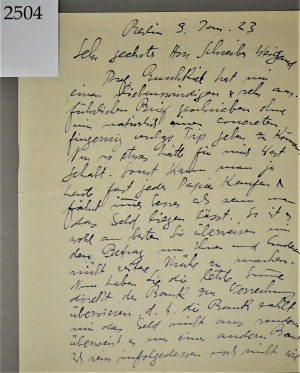 2504
Berlin 9. Jan. 23
Sehr geehrter Herr Schreiber Weigand
Prof. hat mir
einen liebenswürdigen & sehr aus-
führlichen Brief geschrieben ohne
mir natürlich einen concreten
Tip geben zu können
so etwas hätte für mich Wert
gehabt. Sonst kann man ja
heute fast jedes Papier kaufen &
fährt immer besser als wenn man
das Geld liegen lässt. So ist es
wohl am besten Sie überweisen mir
den Betrag um Ihnen und Anderen
nicht weitere Mühe zu machen.
Nun haben Sie die letzte Summe
direkt der Bank zur Verrechnung
überwiesen, d. h. die Bank zahlt
mir das Geld nicht aus sondern
überweist es nur einer andern Bank
infolgedessen noch nicht